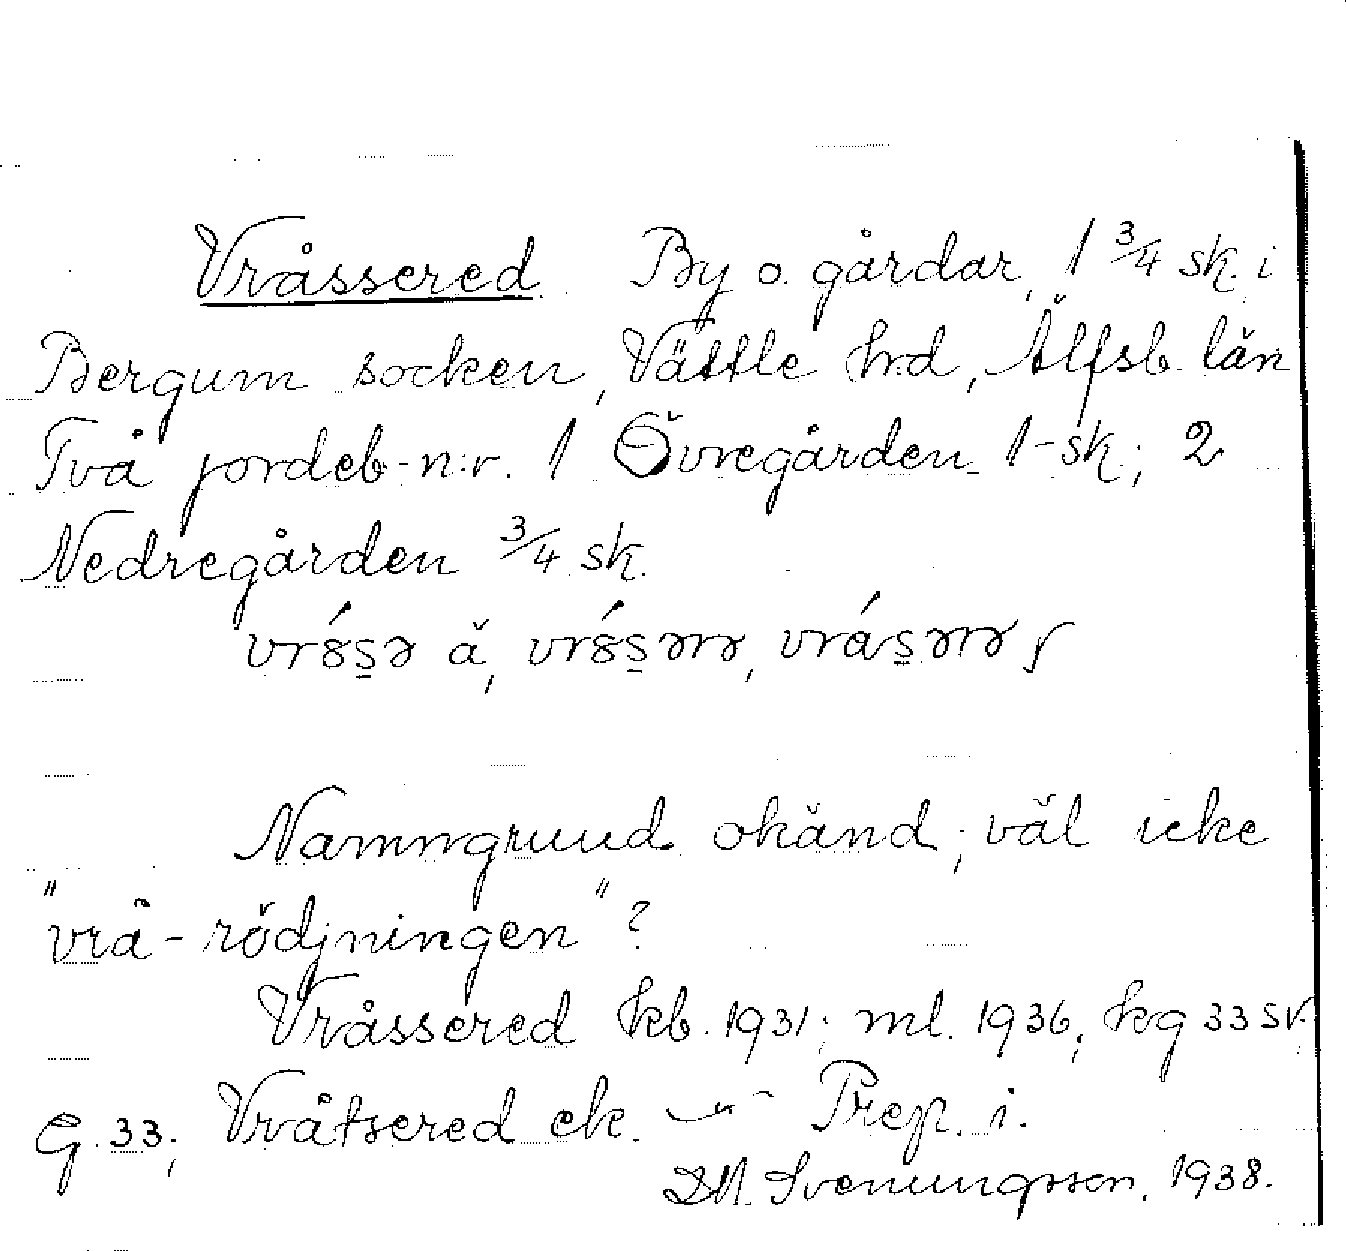 Vråssered. By o. gårdar, 1 3/4 sk. i
Bergum socken, Vättle hrd, Älfsb. län
Två jordeb-n:r. 1 Övregården 1-sk; 2
Nedregården 3/4 sk.
Namngrund okänd; väl icke
"vrå-röjdningen"?
Vråssered kb. 1931; ml. 1936, kg 33 SV.
G. 33; Vråtsered ek. Prep. i.
Svenungsson, 1938.